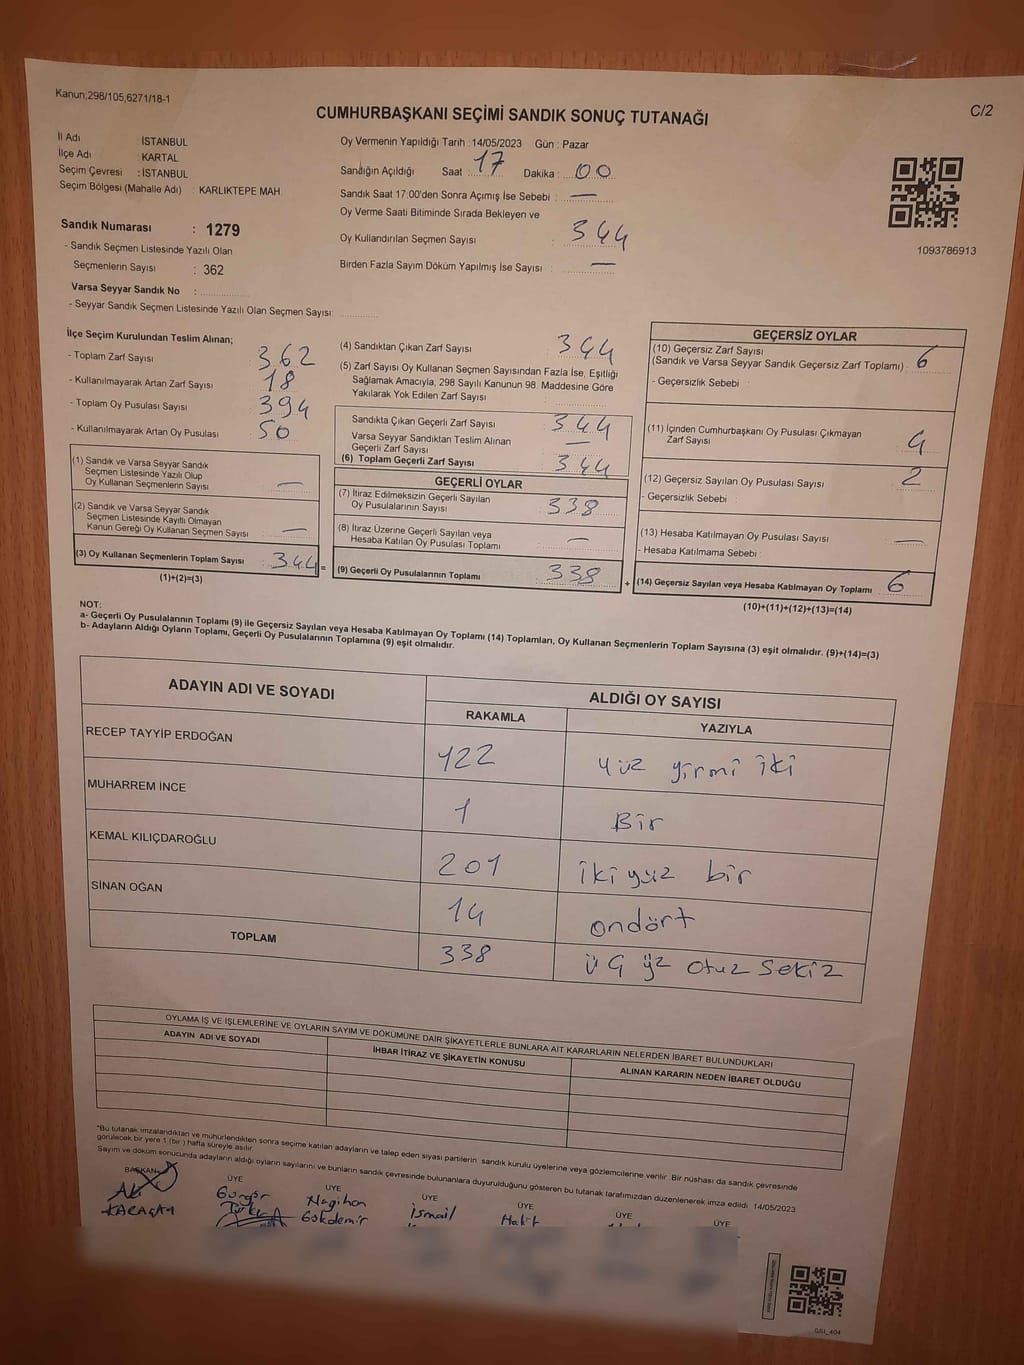 Kanun;298/105,6271/18-1
C/2
CUMHURBAŞKANI SEÇİMİ SANDIK SONUÇ TUTANAĞI
İl Adı : İSTANBUL
İlçe Adı : KARTAL
Seçim Çevresi : İSTANBUL
Seçim Bölgesi (Mahalle Adı) : KARLIKTEPE MAH.
Oy Vermenin Yapıldığı Tarih : 14/05/2023 Gün : Pazar
Sandığın Açıldığı Saat : 17 Dakika : 00
Sandık Saat 17:00'den Sonra Açımış İse Sebebi : —
Oy Verme Saati Bitiminde Sırada Bekleyen ve
Oy Kullandırılan Seçmen Sayısı : 344
Birden Fazla Sayım Döküm Yapılmış İse Sayısı : —
1093786913
Sandık Numarası : 1279
- Sandık Seçmen Listesinde Yazılı Olan
Seçmenlerin Sayısı : 362
Varsa Seyyar Sandık No :
- Seyyar Sandık Seçmen Listesinde Yazılı Olan Seçmen Sayısı:
İlçe Seçim Kurulundan Teslim Alınan;
- Toplam Zarf Sayısı : 362
- Kullanılmayarak Artan Zarf Sayısı : 18
- Toplam Oy Pusulası Sayısı : 394
- Kullanılmayarak Artan Oy Pusulası : 50
(1) Sandık ve Varsa Seyyar Sandık
Seçmen Listesinde Yazılı Olup
Oy Kullanan Seçmenlerin Sayısı : —
(2) Sandık ve Varsa Seyyar Sandık
Seçmen Listesinde Kayıtlı Olmayan
Kanun Gereği Oy Kullanan Seçmen Sayısı : —
(3) Oy Kullanan Seçmenlerin Toplam Sayısı : 344 =
(1)+(2)=(3)
(4) Sandıktan Çıkan Zarf Sayısı : 344
(5) Zarf Sayısı Oy Kullanan Seçmen Sayısından Fazla İse, Eşitliği
Sağlamak Amacıyla, 298 Sayılı Kanunun 98. Maddesine Göre
Yakılarak Yok Edilen Zarf Sayısı :
Sandıkta Çıkan Geçerli Zarf Sayısı : 344
Varsa Seyyar Sandıktan Teslim Alınan
Geçerli Zarf Sayısı : —
(6) Toplam Geçerli Zarf Sayısı : 344
GEÇERLİ OYLAR
(7) İtiraz Edilmeksizin Geçerli Sayılan
Oy Pusulalarının Sayısı : 338
(8) İtiraz Üzerine Geçerli Sayılan veya
Hesaba Katılan Oy Pusulası Toplamı : —
(9) Geçerli Oy Pusulalarının Toplamı : 338 +
GEÇERSİZ OYLAR
(10) Geçersiz Zarf Sayısı
(Sandık ve Varsa Seyyar Sandık Geçersiz Zarf Toplamı) : 6
- Geçersizlik Sebebi :
(11) İçinden Cumhurbaşkanı Oy Pusulası Çıkmayan
Zarf Sayısı : 4
(12) Geçersiz Sayılan Oy Pusulası Sayısı : 2
- Geçersizlik Sebebi :
(13) Hesaba Katılmayan Oy Pusulası Sayısı : —
- Hesaba Katılmama Sebebi :
(14) Geçersiz Sayılan veya Hesaba Katılmayan Oy Toplamı : 6
(10)+(11)+(12)+(13)=(14)
NOT:
a- Geçerli Oy Pusulalarının Toplamı (9) ile Geçersiz Sayılan veya Hesaba Katılmayan Oy Toplamı (14) Toplamları, Oy Kullanan Seçmenlerin Toplam Sayısına (3) eşit olmalıdır. (9)+(14)=(3)
b- Adayların Aldığı Oyların Toplamı, Geçerli Oy Pusulalarının Toplamına (9) eşit olmalıdır.
ADAYIN ADI VE SOYADI
ALDIĞI OY SAYISI
RAKAMLA YAZIYLA
RECEP TAYYİP ERDOĞAN 122 yüz yirmi iki
MUHARREM İNCE 1 Bir
KEMAL KILIÇDAROĞLU 201 iki yüz bir
SİNAN OĞAN 14 ondört
TOPLAM 338 üç yüz otuz sekiz
OYLAMA İŞ VE İŞLEMLERİNE VE OYLARIN SAYIM VE DÖKÜMÜNE DAİR ŞİKAYETLERLE BUNLARA AİT KARARLARIN NELERDEN İBARET BULUNDUKLARI
ADAYIN ADI VE SOYADI İHBAR İTİRAZ VE ŞİKAYETİN KONUSU ALINAN KARARIN NEDEN İBARET OLDUĞU
*Bu tutanak imzalandıktan ve mühürlendikten sonra seçime katılan adayların ve talep eden siyasi partilerin sandık kurulu üyelerine veya gözlemcilerine verilir. Bir nüshası da sandık çevresinde
görülecek bir yere 1 (bir) hafta süreyle asılır.
Sayım ve döküm sonucunda adayların aldığı oyların sayılarını ve bunların sandık çevresinde bulunanlara duyurulduğunu gösteren bu tutanak tarafımızdan düzenlenerek imza edildi. 14/05/2023
BAŞKAN ÜYE ÜYE ÜYE ÜYE ÜYE ÜYE
Ali Nagihan İsmail Halit
KARAÇAM Gökdemir